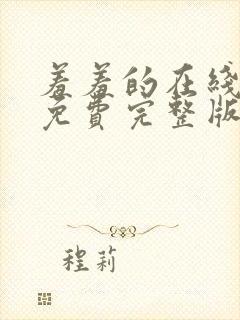 羞羞的在线
免费完整版
程莉